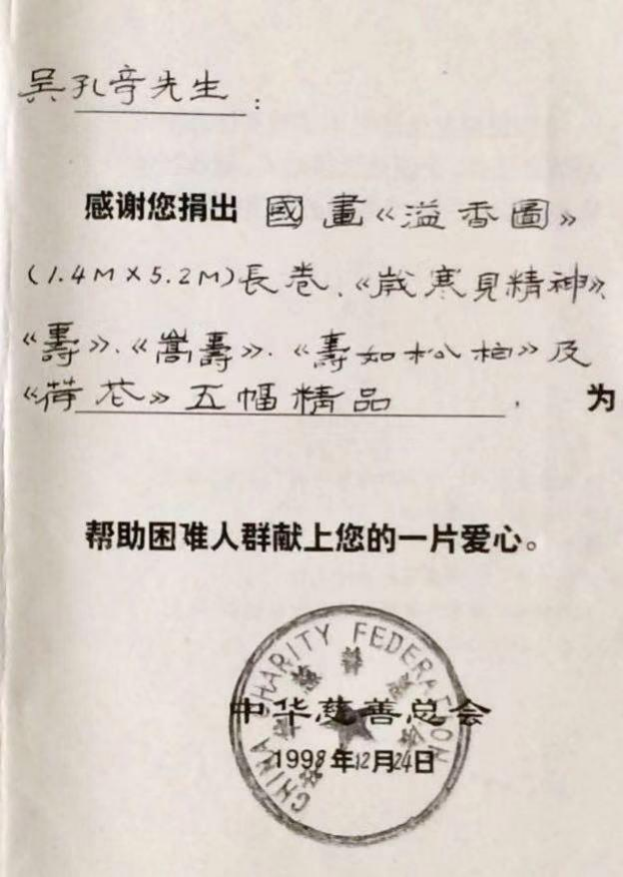 吴孔章先生:
感谢您捐出 國畫《溢香圖》
(1.4M×5.2M)長卷、《歲寒見精神》、
《壽》、《嵩壽》、《壽如松柏》及
《荷花》五幅精品, 为
帮助困难人群献上您的一片爱心。
CHINA CHARITY FEDERATION
中华慈善总会
1998年12月24日